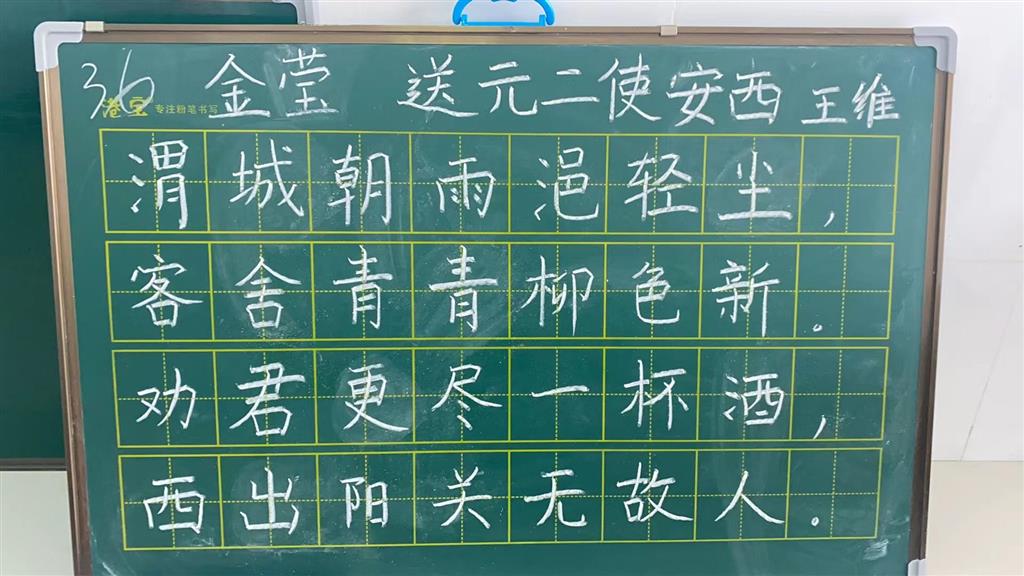 36 金莹 送元二使安西 王维
港宝 专注粉笔书写
渭城朝雨浥轻尘，
客舍青青柳色新。
劝君更尽一杯酒，
西出阳关无故人。